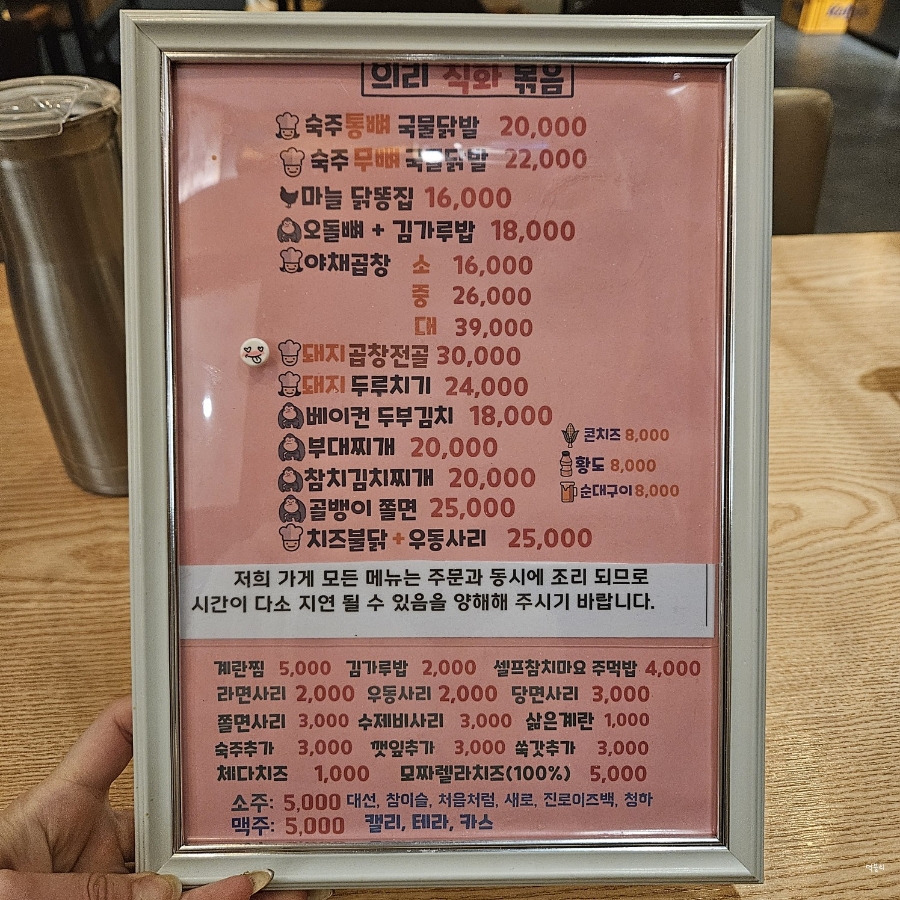 의리 식화 볶음
숙주통뼈 국물닭발 20,000
숙주 무뼈 국물닭발 22,000
마늘 닭똥집 16,000
오돌뼈 + 김가루밥 18,000
야채곱창 소 16,000
중 26,000
대 39,000
돼지곱창전골 30,000
돼지 두루치기 24,000
베이컨 두부김치 18,000
부대찌개 20,000
참치김치찌개 20,000
골뱅이 쫄면 25,000
치즈불닭+우동사리 25,000
콘치즈 8,000
황도 8,000
순대구이 8,000
저희 가게 모든 메뉴는 주문과 동시에 조리 되므로
시간이 다소 지연 될 수 있음을 양해해 주시기 바랍니다.
계란찜 5,000 김가루밥 2,000 셀프참치마요 주먹밥 4,000
라면사리 2,000 우동사리 2,000 당면사리 3,000
쫄면사리 3,000 수제비사리 3,000 삶은계란 1,000
숙주추가 3,000 깻잎추가 3,000 쑥갓추가 3,000
체다치즈 1,000 모짜렐라치즈(100%) 5,000
소주: 5,000 대선, 참이슬, 처음처럼, 새로, 진로이즈백, 청하
맥주: 5,000 캘리, 테라, 카스